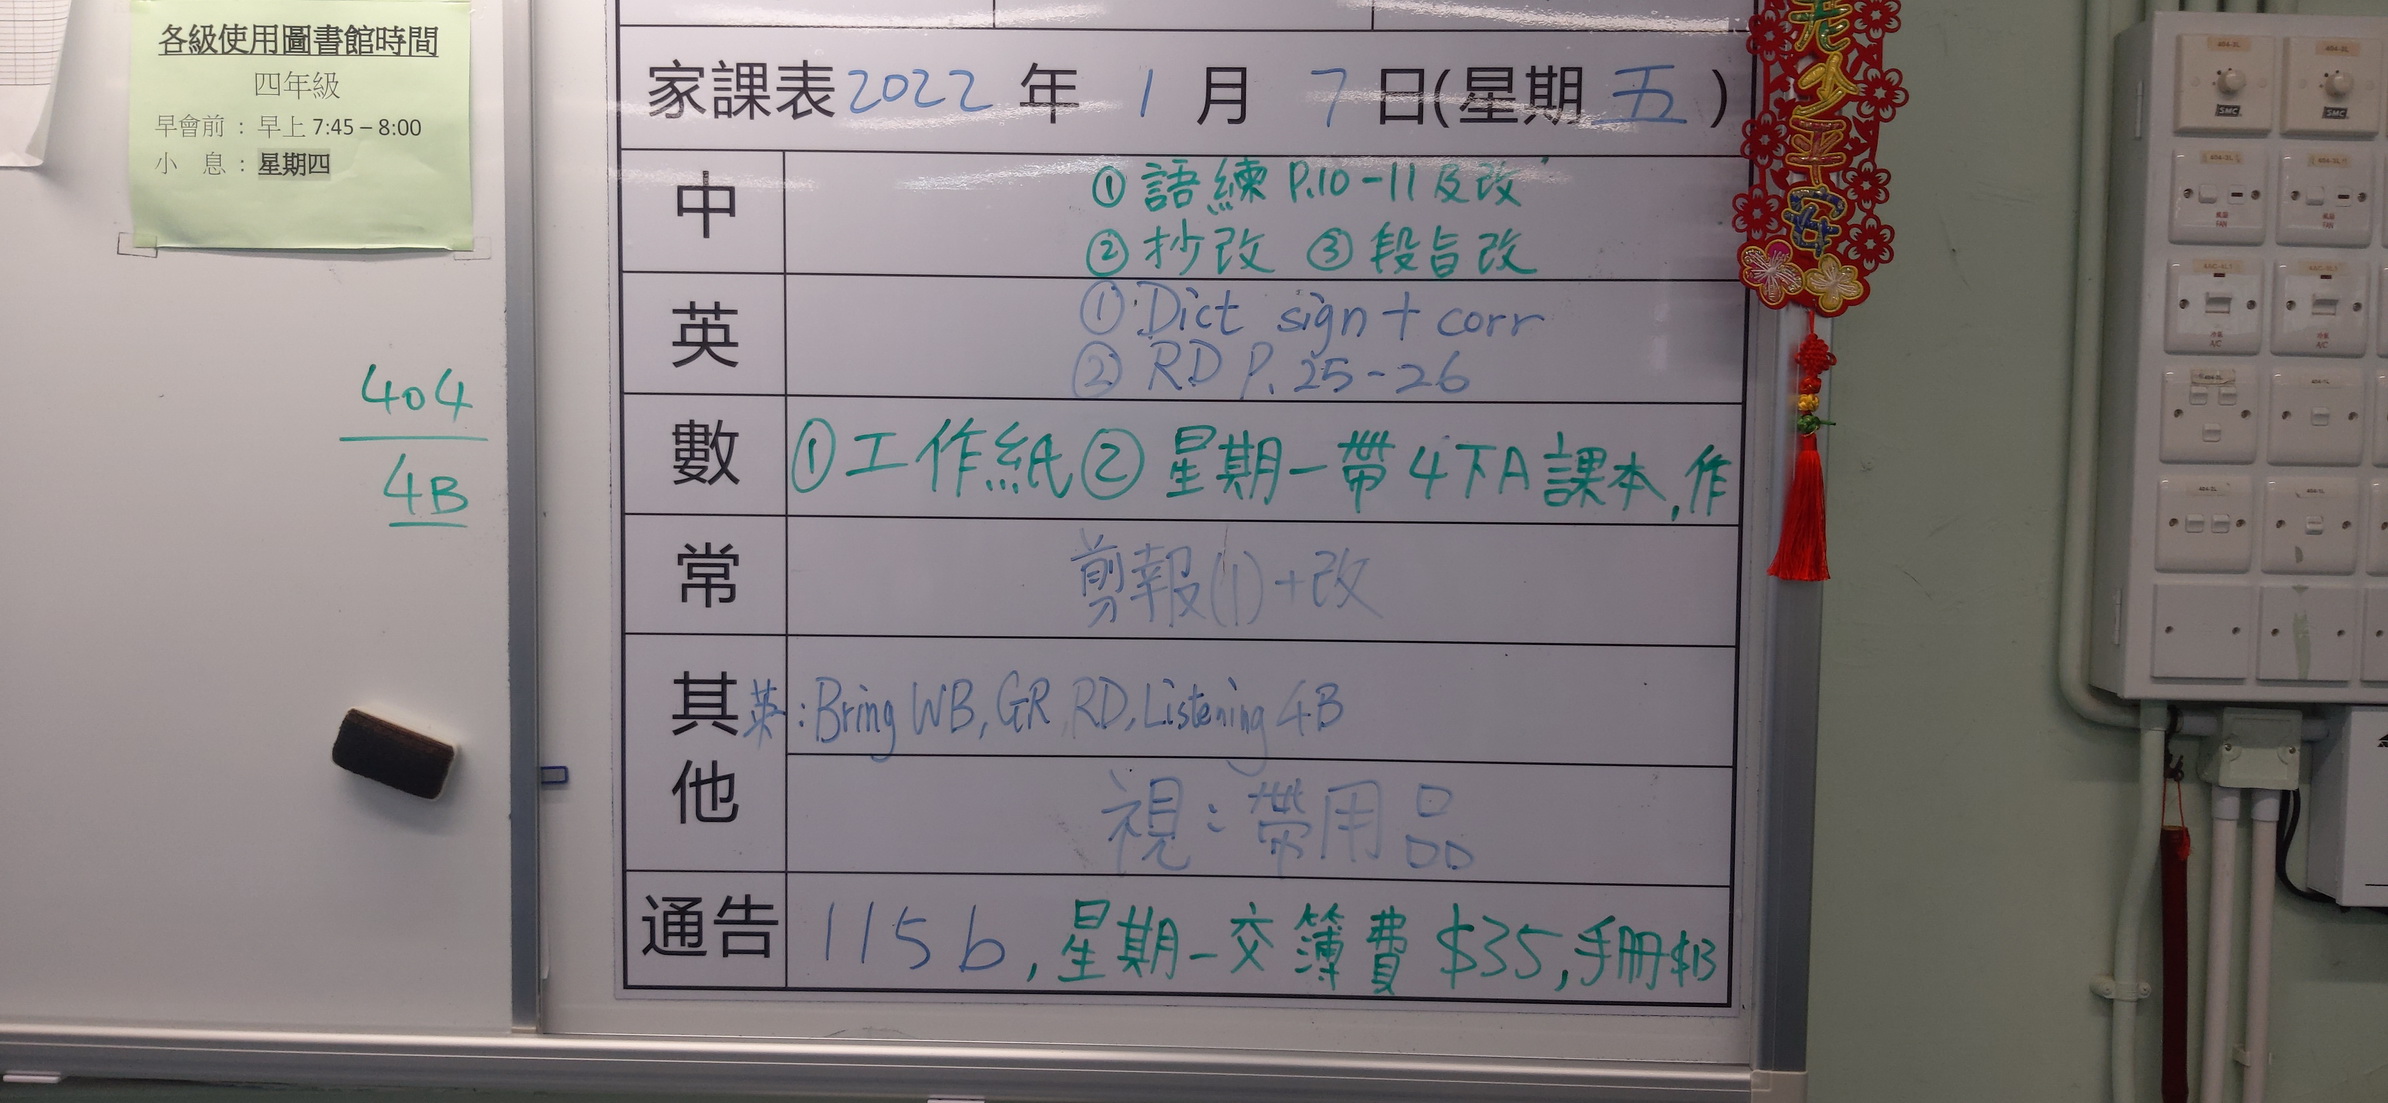 各級使用圖書館時間
四年級
早會前：早上 7:45 – 8:00
小 息：星期四
404
4B
家課表 2022 年 1 月 7 日(星期 五 )
中
① 語練 P.10-11 及改
② 抄改 ③ 段旨改
英
① Dict sign + corr
② RD P. 25-26
數 ① 工作紙 ② 星期一帶 4下A 課本, 作
常 剪報(1)+改
其他
英: Bring WB, GR, RD, Listening 4B
視: 帶用品
通告 115b, 星期一交簿費 $35, 手冊$13
老少平安